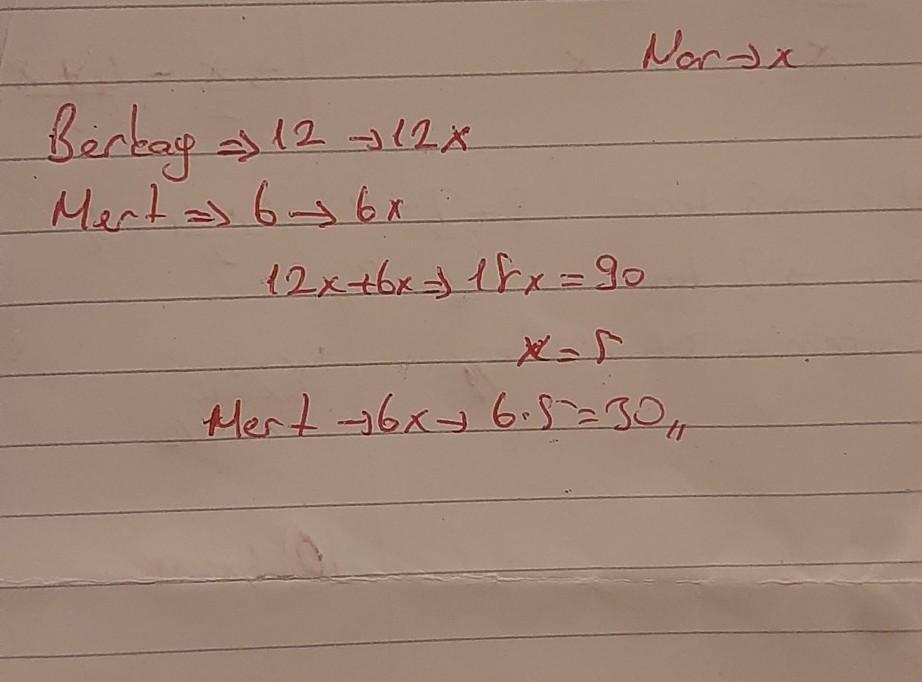 Nar→x
Berkay ⇒ 12 → 12x
Mert ⇒ 6 → 6x
12x+6x ⇒ 18x = 90
x = 5
Mert → 6x → 6·5 = 30,,